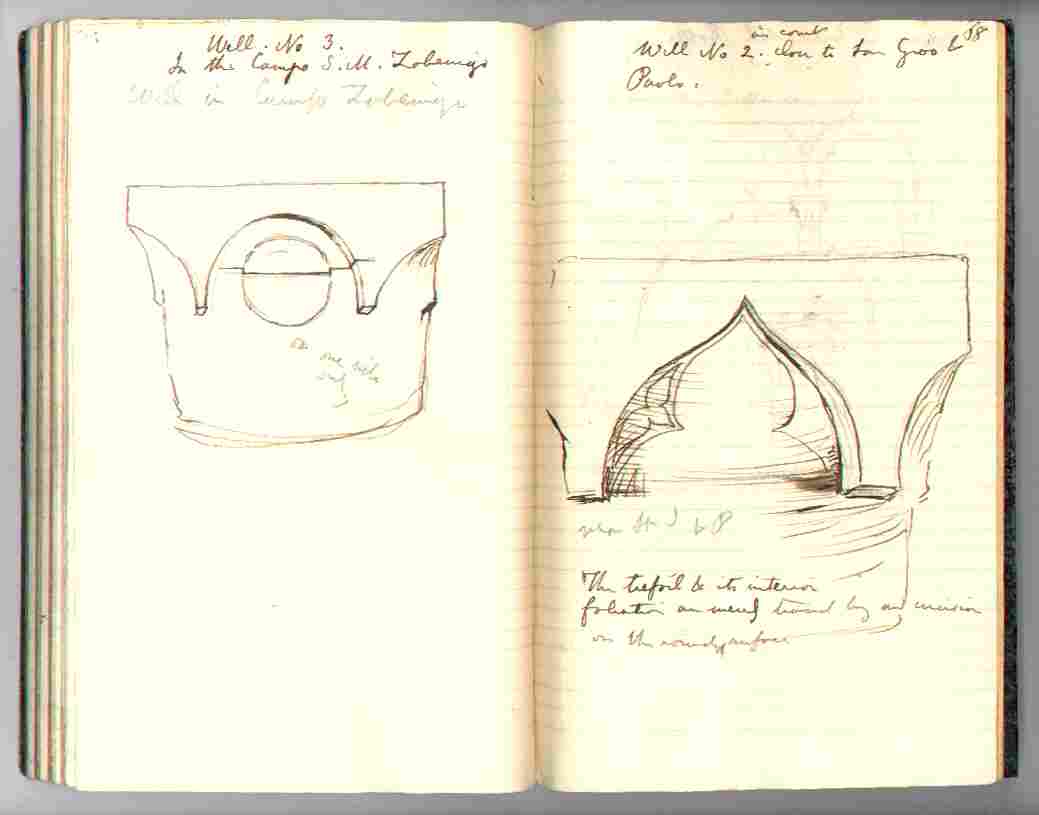 Well. No 3.
In the Campo S. M. Zobenigo
Well in Campo Zobenigo
on one side
only
58
in court
Well No 2. close to San Giov &
Paolo.
St J & P
The trefoil & its interior
foliation are merely traced by an incision
on the round surface